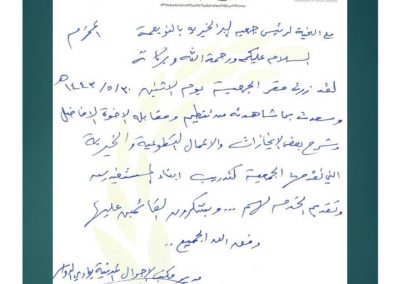 مع التحية لرئيس جمعية البر الخيرية بالنويعمة المحترم
السلام عليكم ورحمة الله وبركاته
لقد زرت مقر الجمعية يوم الاثنين ١٤٤٣/٥/٣٠هـ
وسعدت بما شاهدته من تنظيم ومقابلة الاخوة الافاضل
وشرح بعض الإنجازات والاعمال التطوعية والخيرية
التي تقدمها الجمعية كتدريب ابناء المستفيدين
وتقديم الخدمه لهم ... ويشكرون القائمين عليها
وفق الله الجميع ..
مدير مكتب الاحوال المدنية بوادي الدواسر